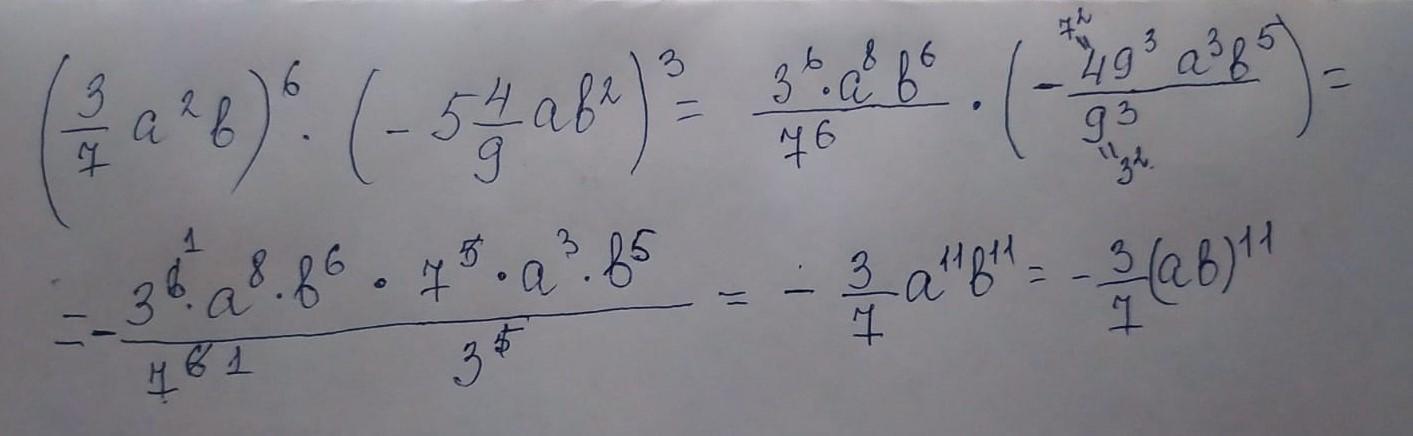 (3/7 a²b)⁶ · (-5 4/9 ab²)³ = 3⁶·a⁸b⁶/7⁶ · (-49³a³b⁵/9³) = 7² = 3²
= -3⁶ ¹·a⁸·b⁶·7⁵·a³·b⁵/7⁶ ¹ 3⁵ = -3/7 a¹¹b¹¹ = -3/7 (ab)¹¹